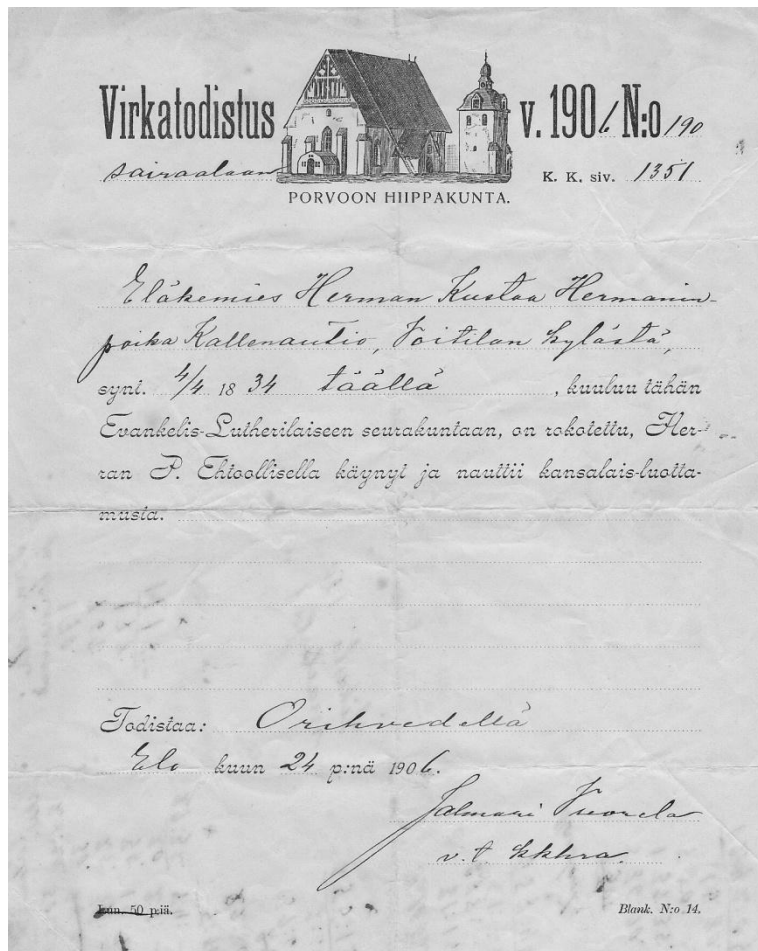 Virkatodistus v. 1906 N:o 190
sairaalaan K. K. siv. 1351
PORVOON HIIPPAKUNTA.
Eläkemies Herman Kustaa Hermanin-
poika Kallenautio, Voitilan kylästä,
synt. 4/4 1834 täällä, kuuluu tähän
Evankelis-Lutherilaiseen seurakuntaan, on rokotettu, Her-
ran P. Ehtoollisella käynyt ja nauttii kansalais-luotta-
musta.
Todistaa: Orihvedellä
Elo kuun 24 p:nä 1906.
Jalmari Vuorela
v. t. kkhra.
50 p:iä. Blank. N:o 14.